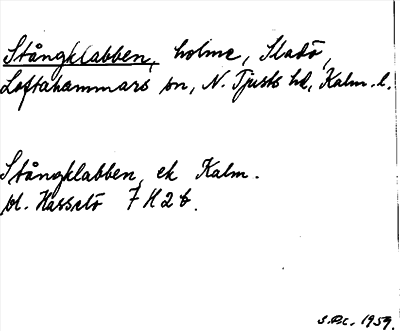 Stångklabben, holme, Sladö,
Loftahammars sn, N. Tjusts hd, Kalm. l.
Stångklabben, ek Kalm.
bl. Hasselö 7 H 2 b.
1959.